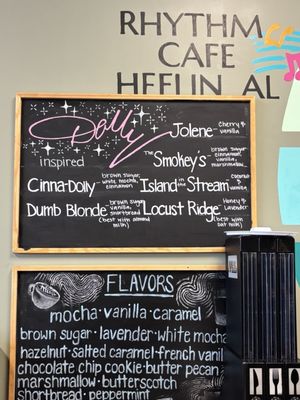 RHYTHM
CAFE
HEFLIN, AL
Dolly
inspired
Jolene
Cherry &
vanilla
The Smokey's
brown sugar,
cinnamon,
vanilla,
marshmallow
Cinna-Dolly
brown sugar,
white mocha,
cinnamon
Island in the Stream
coconut
&
vanilla
Dumb Blonde
brown sugar
vanilla,
shortbread
(best with almond
milk)
Locust Ridge
Honey &
Lavender
(best with oat
milk)
FLAVORS
mocha·vanilla·caramel
brown sugar·lavender·white mocha
hazelnut·salted caramel·french vanil
chocolate chip cookie·butter pecan
marshmallow·butterscotch
shortbread·peppermint